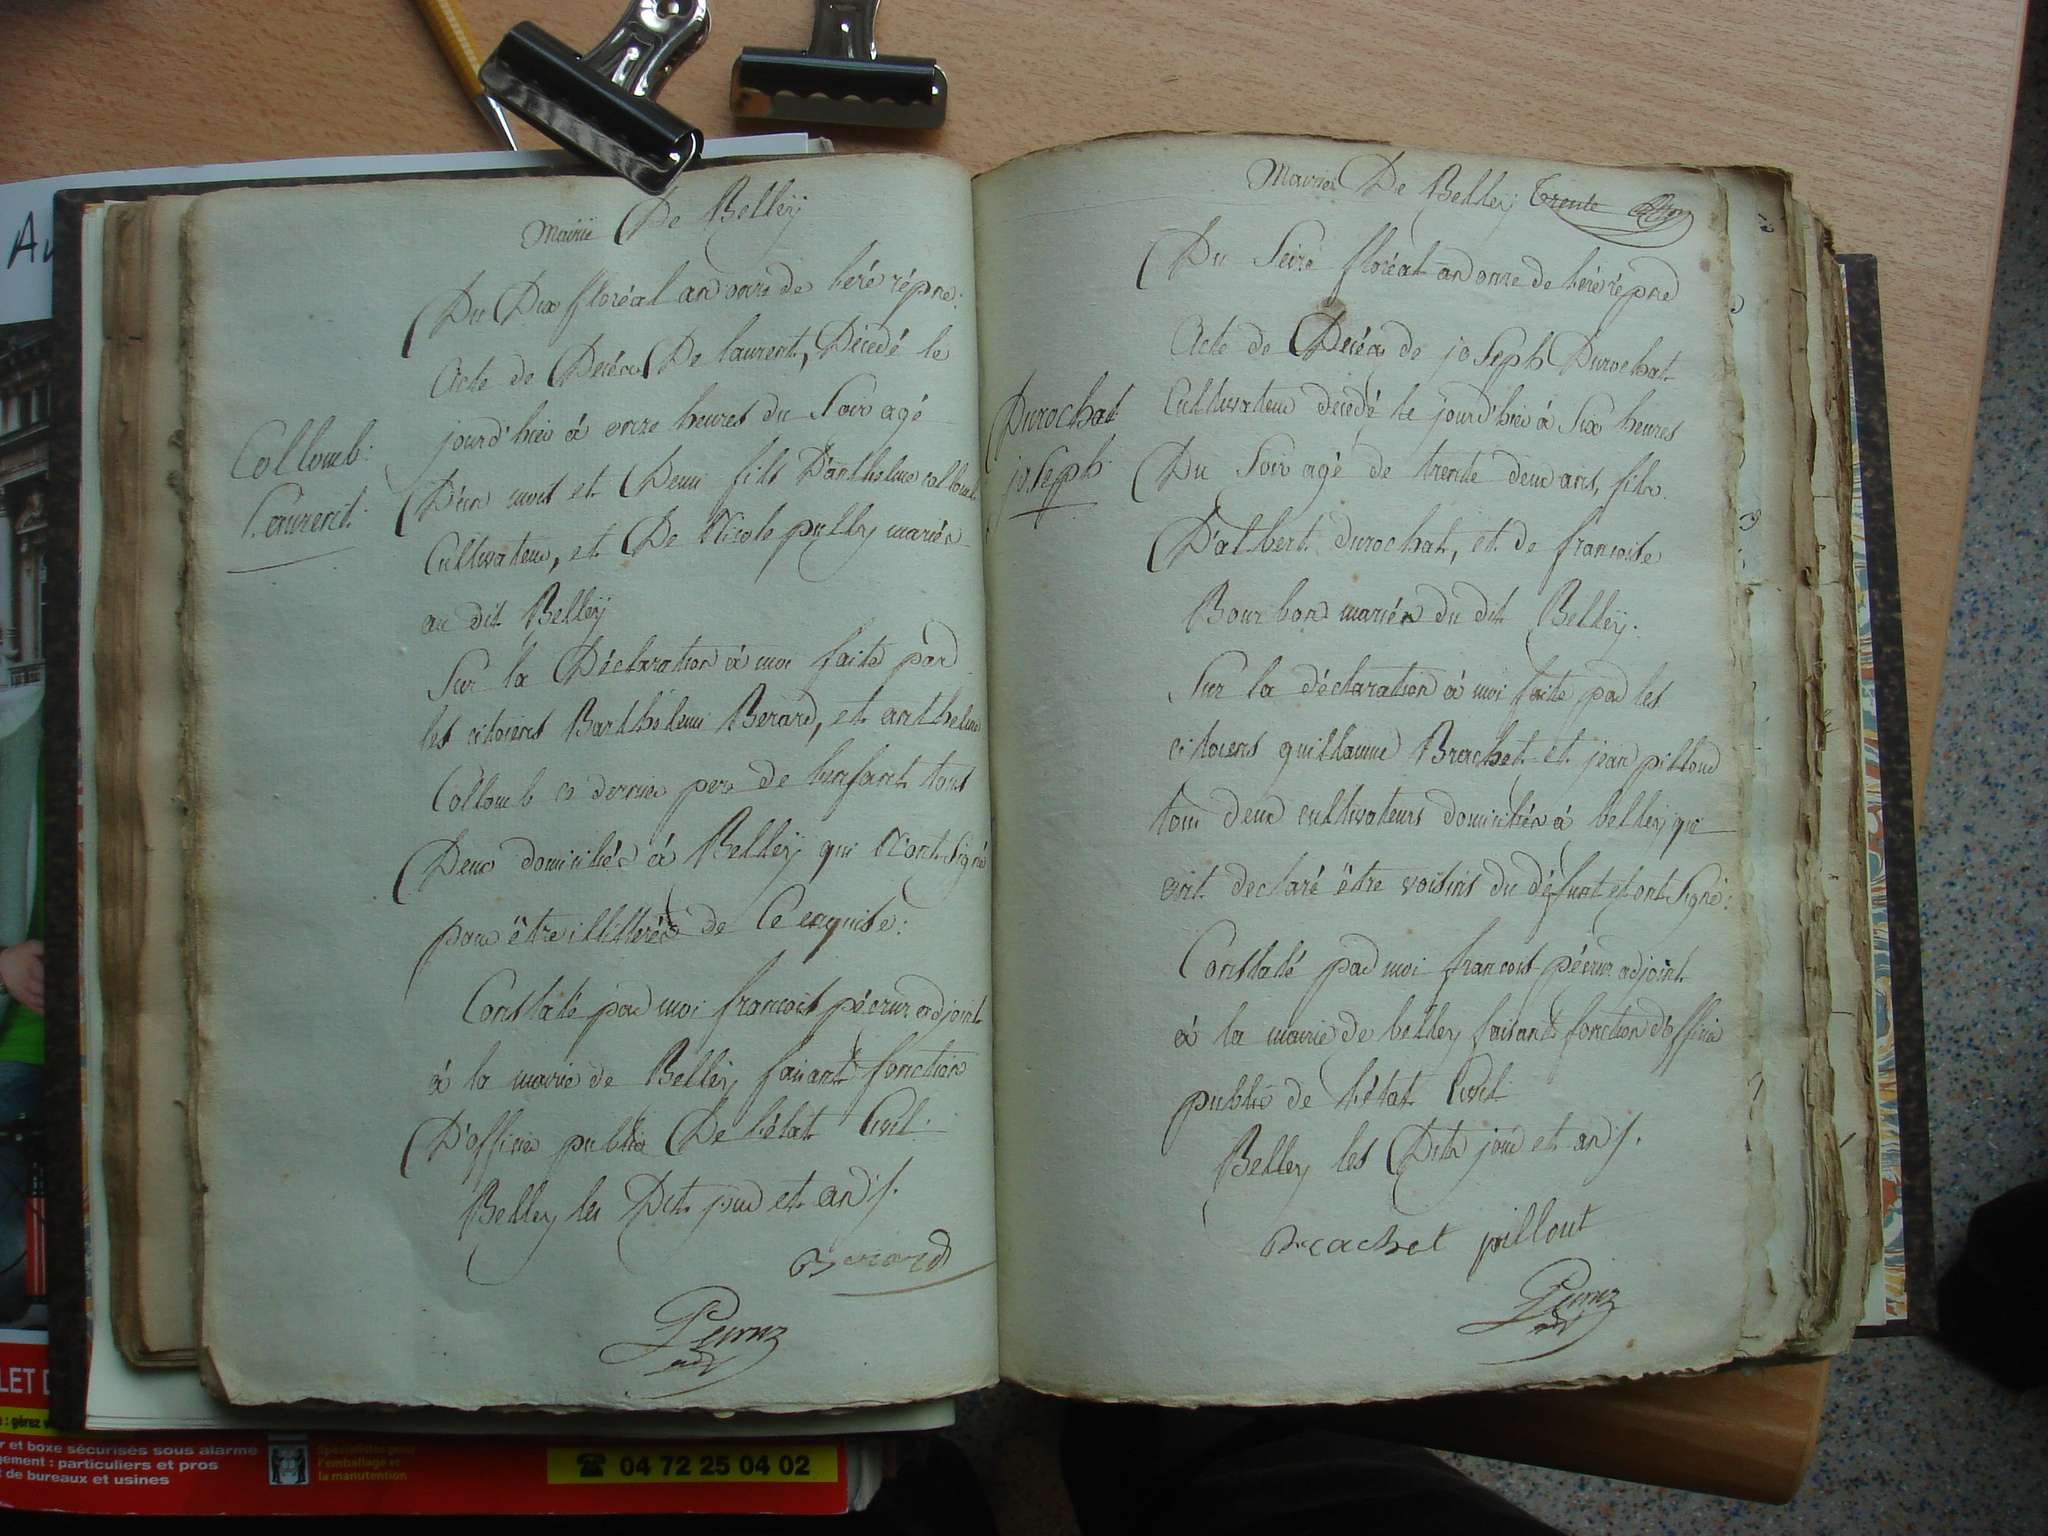 Mairie De Belley
Du Dix floréal an onze de l'ére répne:
Acte de Décès De laurent, Décedé le
jourd'hier à onze heures du Soir agé
D'un mois et Demi fils D'anthelme collomb
Cultivateur, et De Nicole pully mariés
au dit Belleÿ
Collomb:
Laurent:
Sur la Déclaration à moi faite par
les citoiens Barthélemi Berard, et anthelme
Collomb ce dernier pere de lenfant tous
Deux domiciliés à Belleÿ qui N'ont Signé
pour être illitterés de Ce enquise:
Constaté par moi francois pécruz adjoint
à la mairie de Belleÿ faisant fonction
D'officier public De l'état Civil:
Belley les Dits jour et an
Berard
Pecruz
adj
Mairie De Belley trente
Du Seize floréal an onze de l'ére répne
Acte de Décès de joSeph Durochat
Cultivateur décedé le jourd'hier à Six heures
Du Soir agé de trente deux ans, fils
D'albert durochat, et de francoise
Bourbon mariés du dit Belleÿ.
Durochat
joSeph
Sur la déclaration à moi faite par les
citoiens guillaume Brachet et jean pilloud
tous deux cultivateurs domiciliés à belley qui
ont declaré être voisins du défunt et ont Signé:
Constaté par moi francois pécruz adjoint
à la mairie de belley faisant fonction d'officier
public de l'état Civil
Belley les Dits jour et an
Brachet pillout
Pecruz
adj
LET D
r et boxe sécurisés sous alarme
gement : particuliers et pros
t de bureaux et usines
Spécialistes pour
l'emballage et
la manutention
04 72 25 04 02